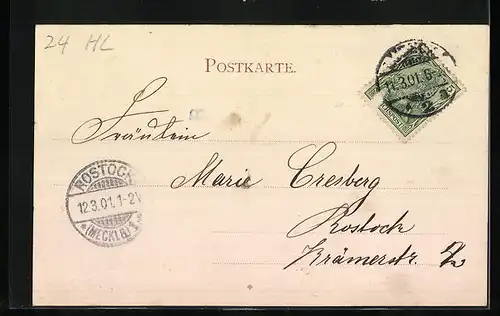 24 HL
POSTKARTE.
12.3.01. 6-
2
Fräulein
Marie Cresberg
Rostock
Krämerstr.
ROSTOCK
12.3.01. 1-2V
(MECKLB) 1